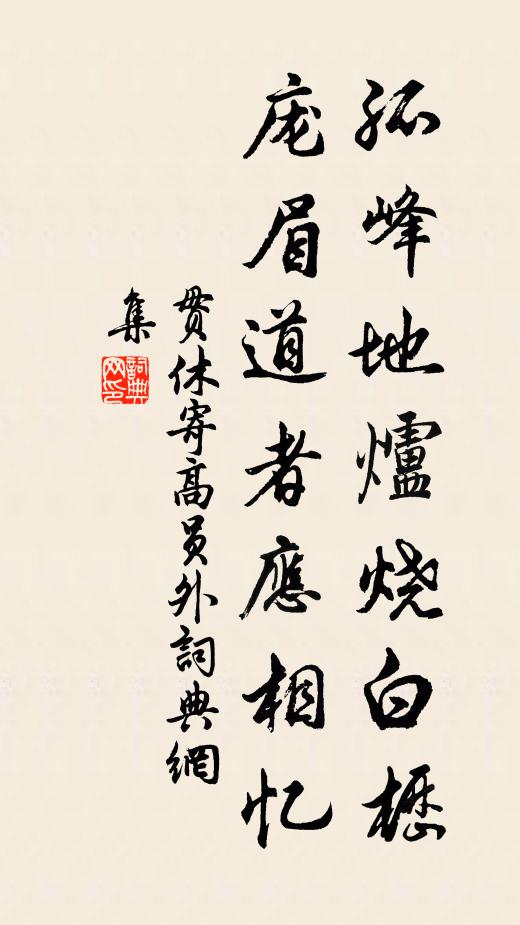 孤峰地爐烧白櫪
庞眉道者應相忆
贯休寄高员外詞典網
集
詞典網印